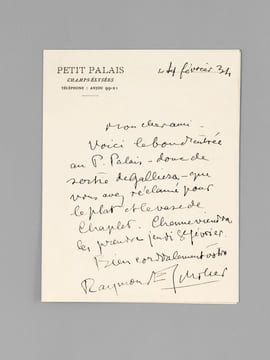 PETIT PALAIS
CHAMPS-ÉLYSÉES
TÉLÉPHONE : ANJOU 99-21
4 février 34
Mon cher ami -
Voici le bon d'entrée
au P. Palais - donc de
sortie de Galliera - que
vous avez réclamé pour
le plat et le vase de
Chaplet. Chenneviendra
les prendre jeudi 8 février.
Bien cordialement vôtre
Raymond Escholier